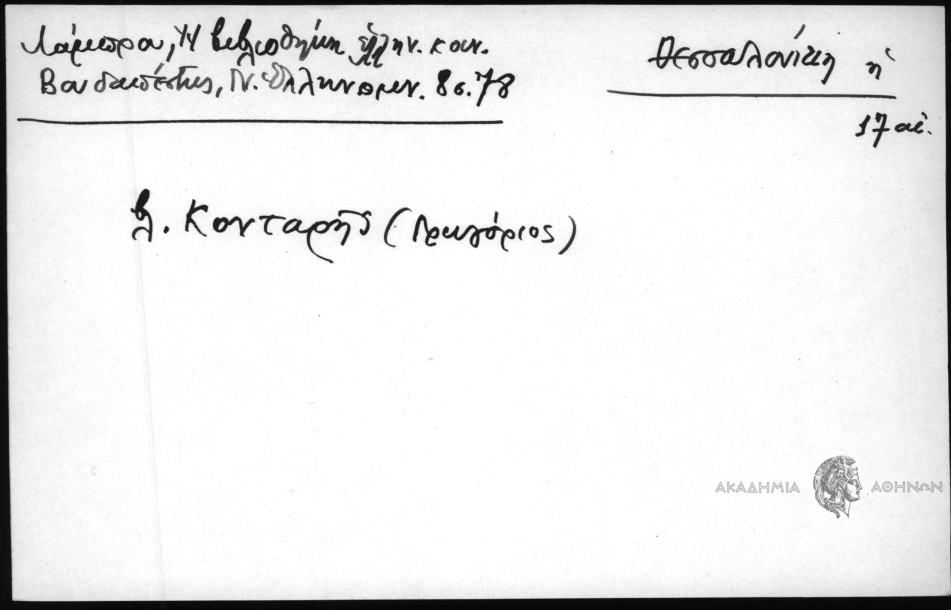 Λάμπρου, Ἡ βιβλιοθήκη ἑλλην. κοιν.
Βουδαπέστης, Ν. Ἑλληνομν. 8 σ. 78
Θεσσαλονίκη ἡ
17 αἰ.
βλ. Κονταρῆς (Γρηγόριος)
ΑΚΑΔΗΜΙΑ ΑΘΗΝΩΝ